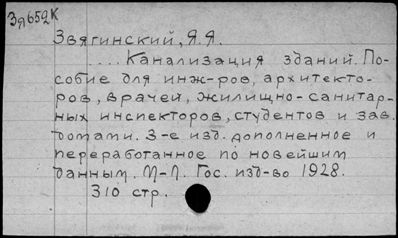 Зя652К
Звягинский, Я.Я.
.... Канализация зданий. По-
собие для инж-ров, архитекто-
ров, врачей, жилищно-санитар-
ных инспекторов, студентов и зав.
домами. 3-е изд. дополненное и
переработанное по новейшим
данным. М-Л. Гос. изд-во 1928.
310 стр.